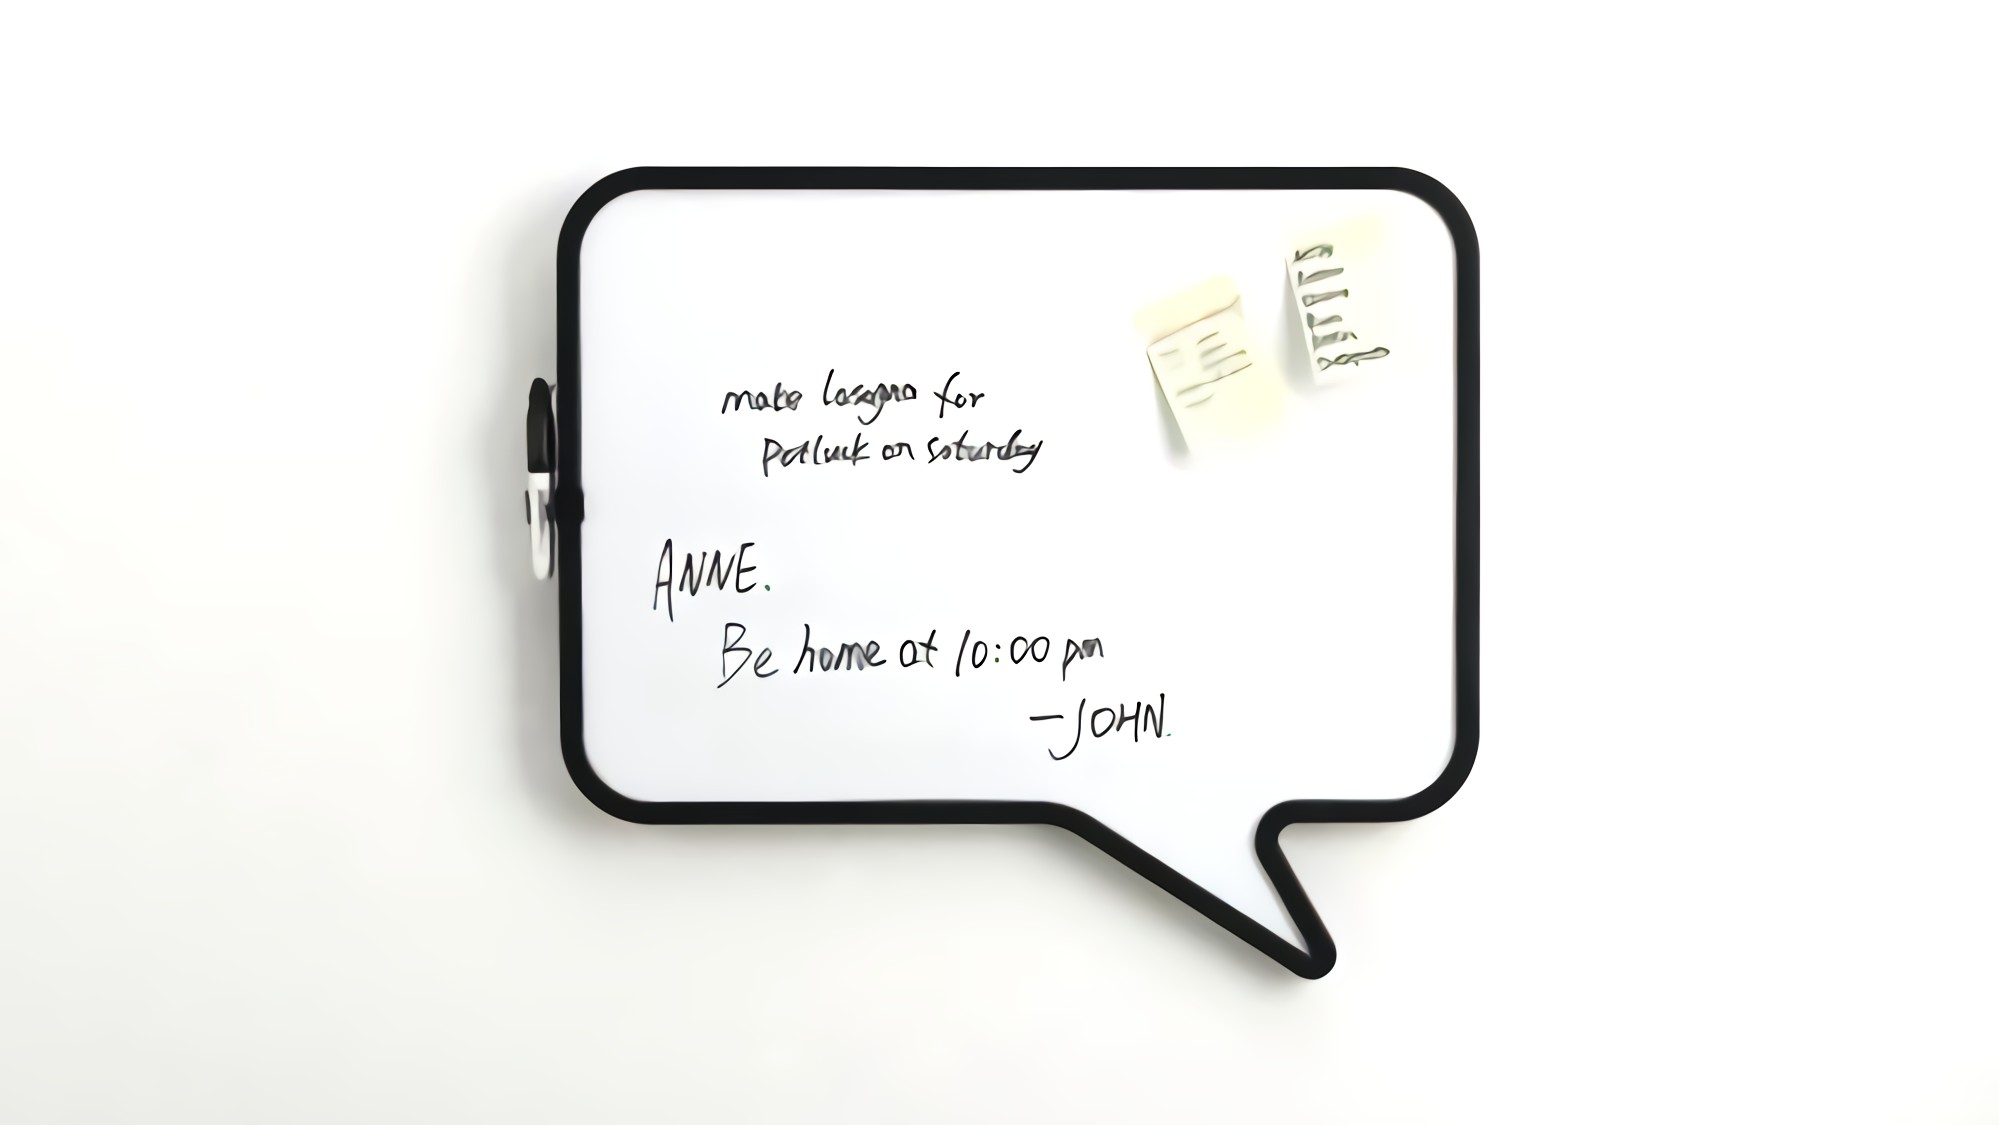 make lasagna for
Potluck on Saturday
ANNE.
Be home at 10:00 pm
-JOHN.